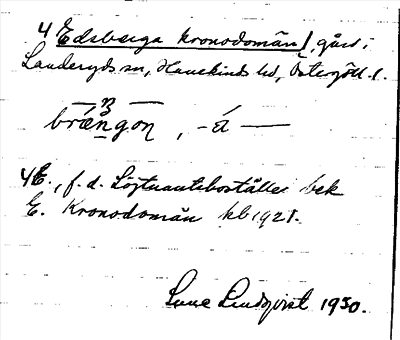 4 Edsberga kronodomän 1, gård i
Landeryds sn, Hanekinds hd, Östergötl. l.
brængon, -á —
4 E., f. d. Löjtnantsboställe bek
E. Kronodomän kb 1921.
Sune Lindqvist 1930.